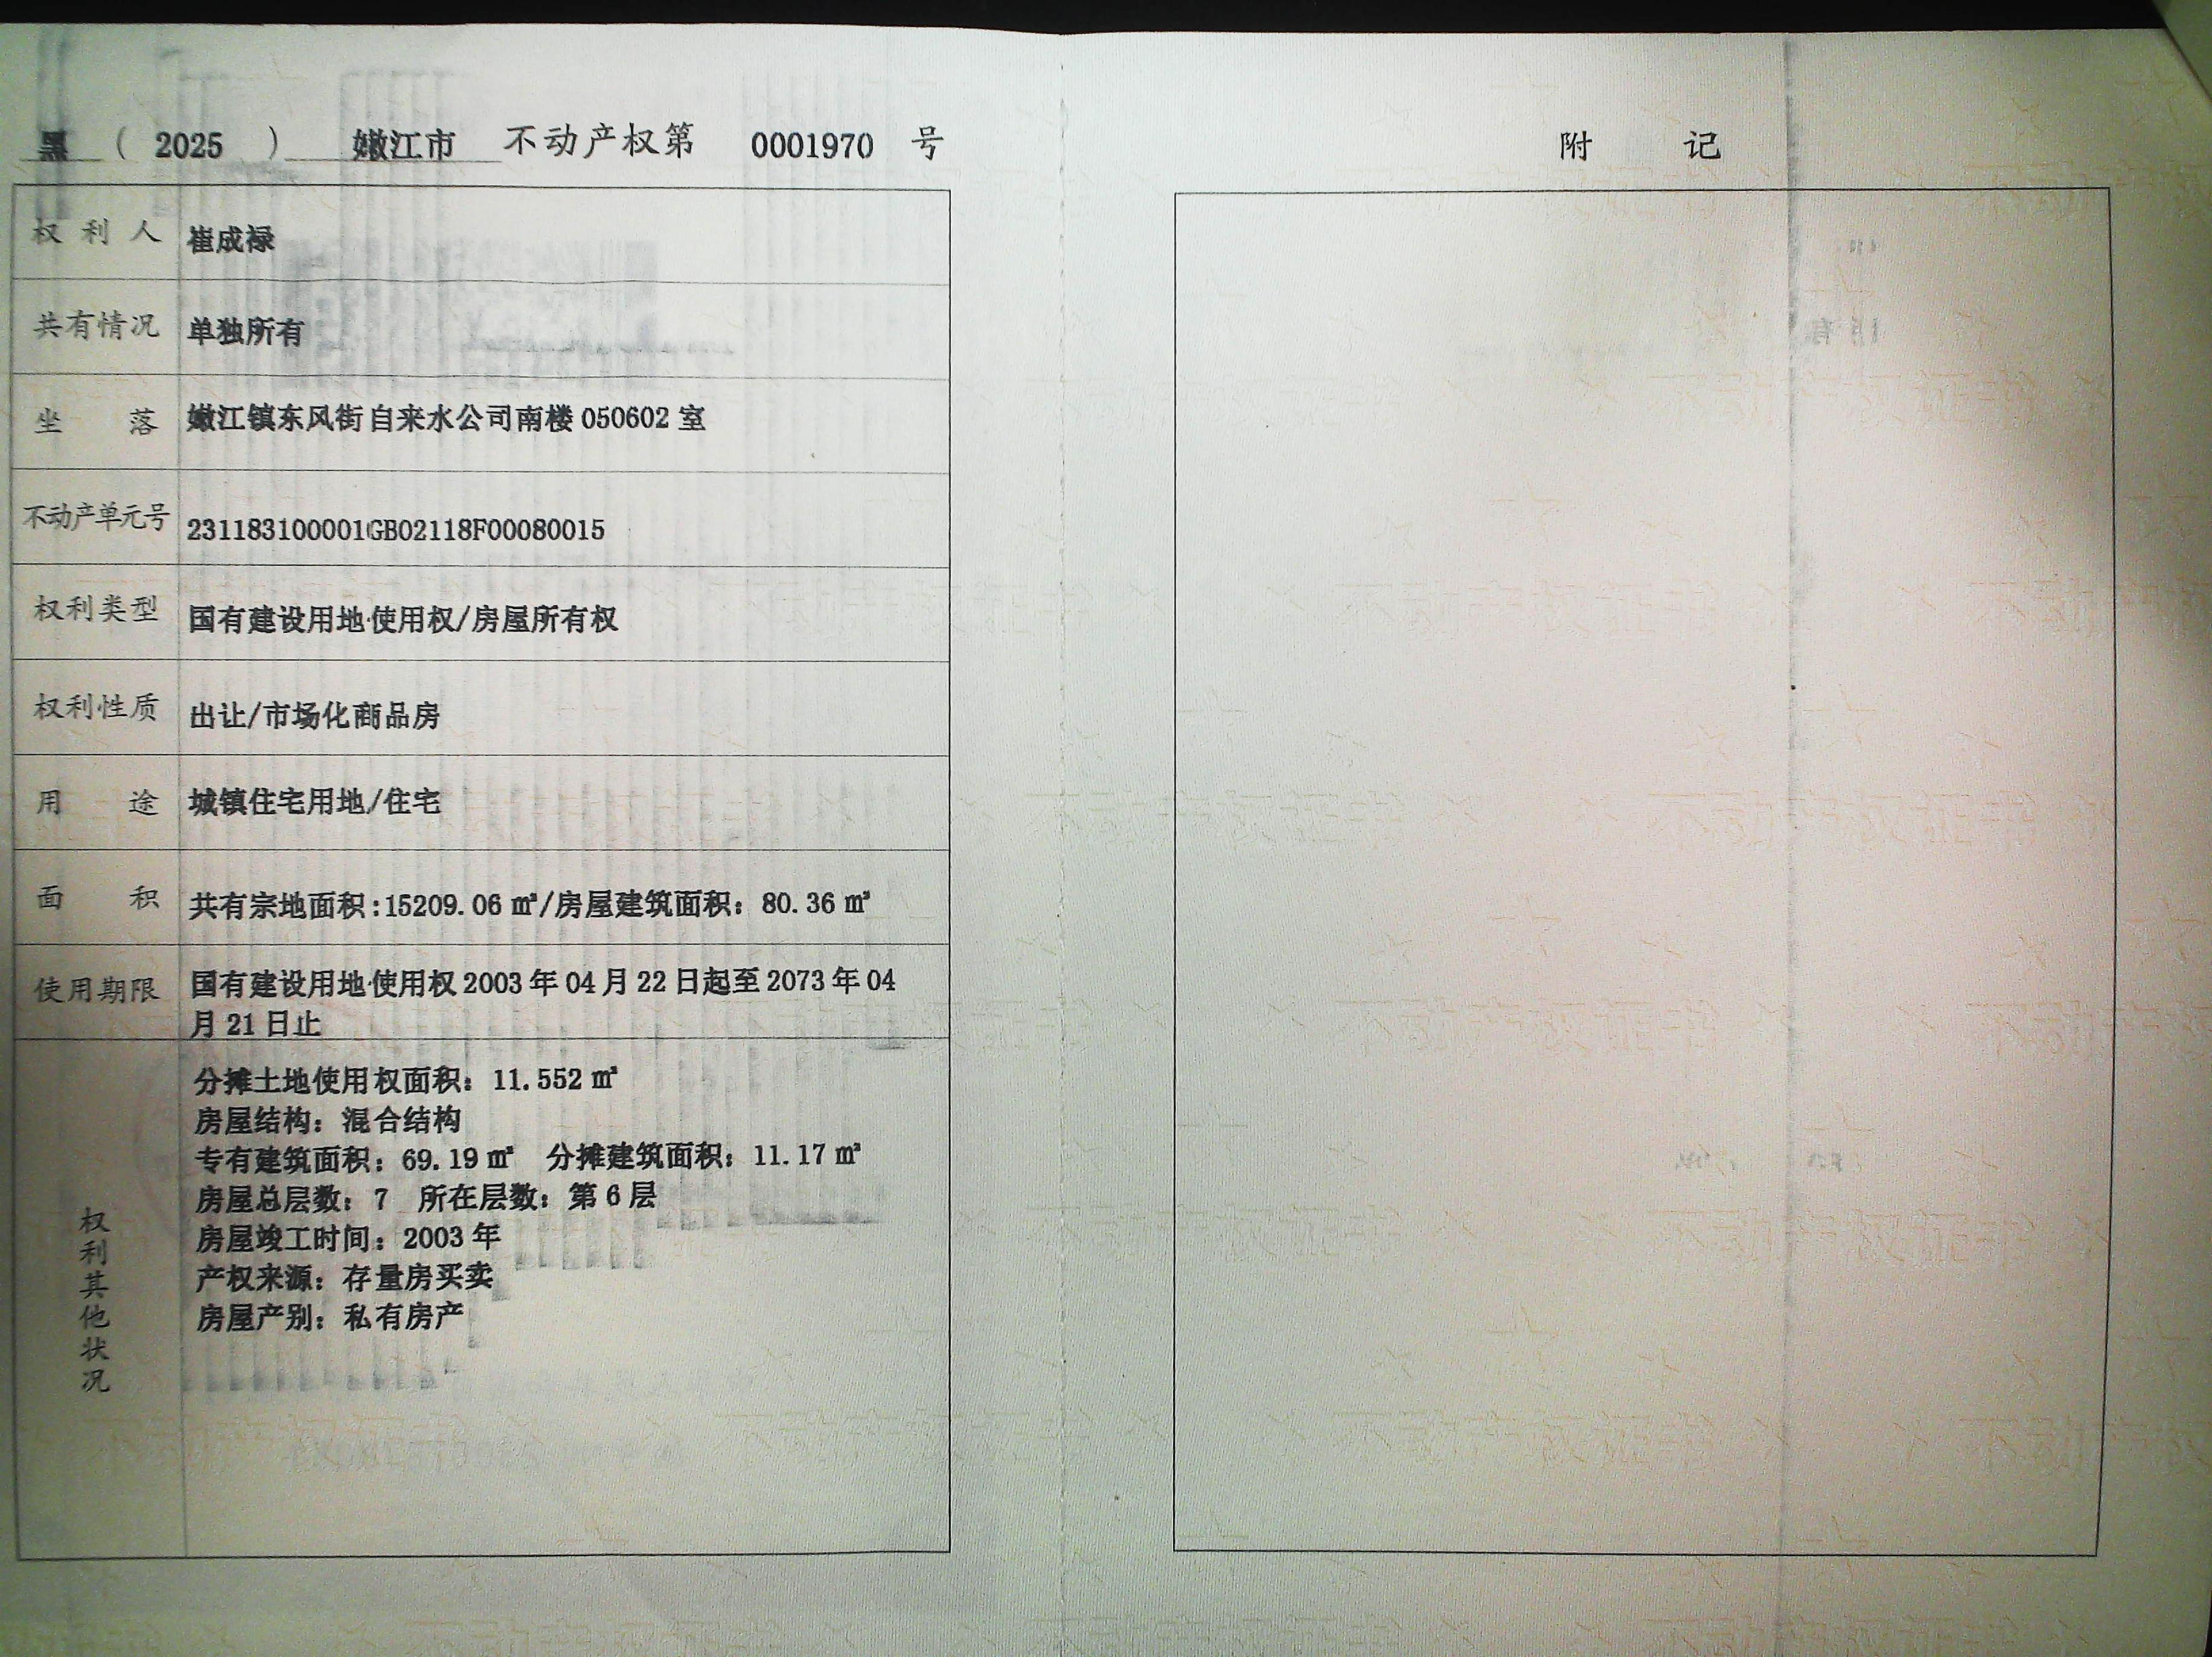 黑 ( 2025 ) 嫩江市 不动产权第 0001970 号
权利人 崔成禄
共有情况 单独所有
坐落 嫩江镇东风街自来水公司南楼 050602 室
不动产单元号 231183100001GB02118F00080015
权利类型 国有建设用地使用权/房屋所有权
权利性质 出让/市场化商品房
用途 城镇住宅用地/住宅
面积 共有宗地面积:15209.06 ㎡/房屋建筑面积：80.36 ㎡
使用期限 国有建设用地使用权 2003 年 04 月 22 日起至 2073 年 04
月 21 日止
权利其他状况
分摊土地使用权面积：11.552 ㎡
房屋结构：混合结构
专有建筑面积：69.19 ㎡ 分摊建筑面积：11.17 ㎡
房屋总层数：7 所在层数：第 6 层
房屋竣工时间：2003 年
产权来源：存量房买卖
房屋产别：私有房产
附记